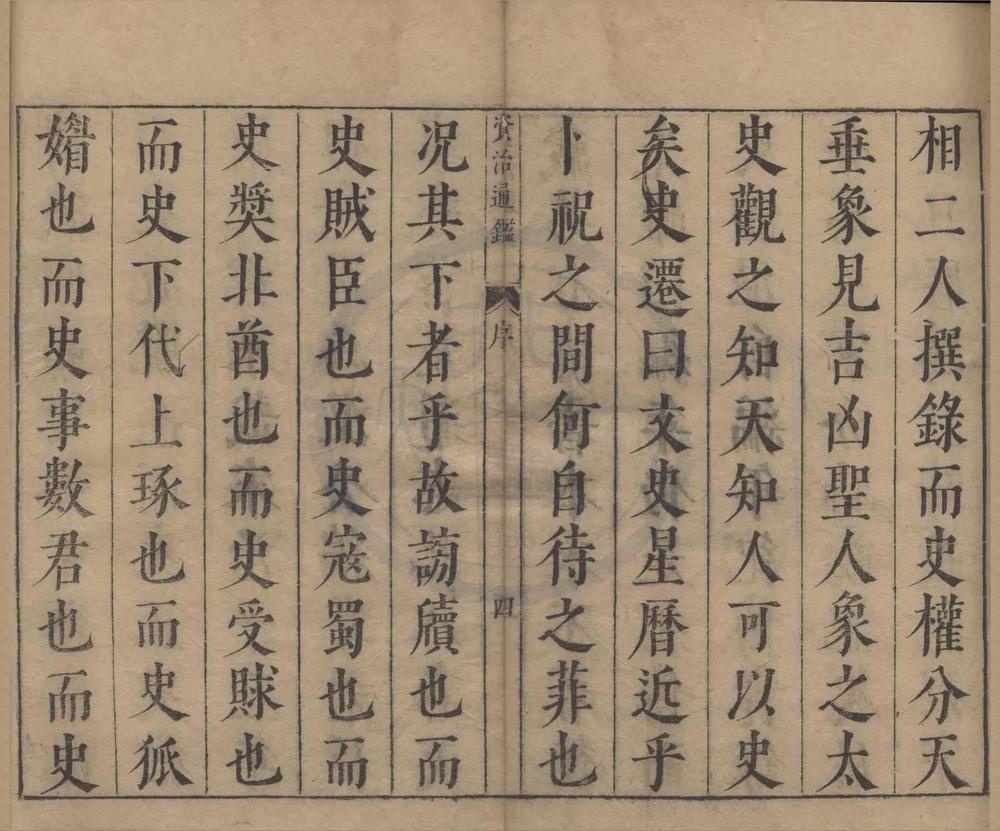 相二人撰錄而史權分天
垂象見吉凶聖人象之太
史觀之知天知人可以史
矣史遷曰文史星曆近乎
卜祝之間何自待之菲也
資治通鑑 序 四
况其下者乎故謗牘也而
史賊臣也而史寇蜀也而
史獎非酋也而史受賕也
而史下代上琢也而史狐
媚也而史事數君也而史